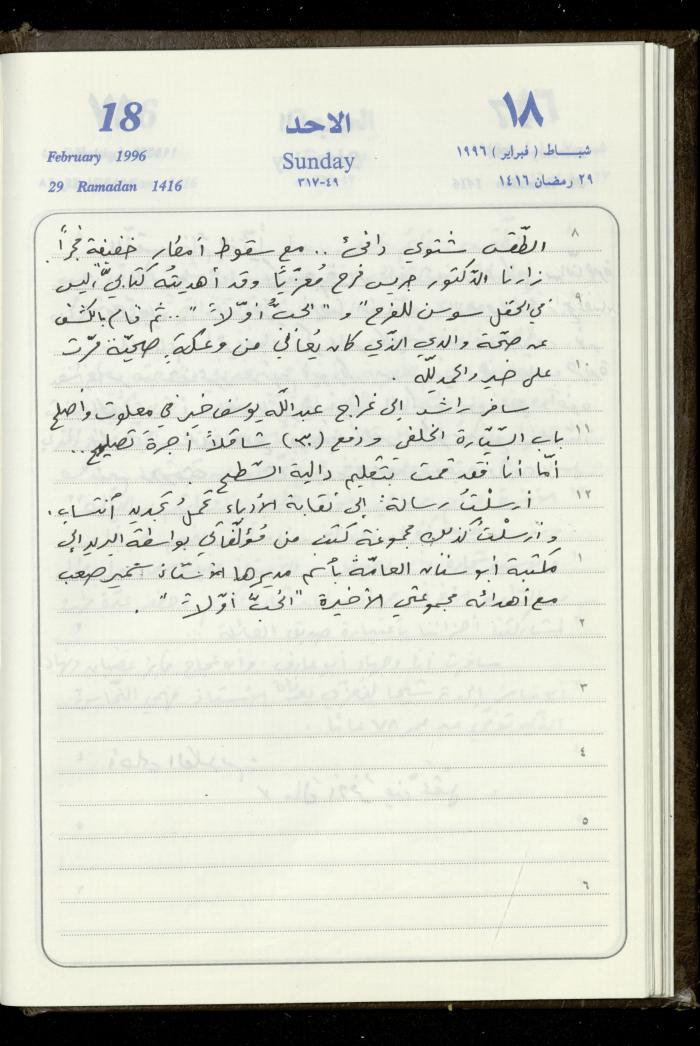 18
الاحد
١٨
February 1996
Sunday
شبـــاط ( فبراير ) ١٩٩٦
29 Ramadan 1416
٣١٧-٤٩
٢٩ رمضان ١٤١٦
٨
الطّقس شتوي دافئ .. مع سقوط أمطار خفيفة فجراً.
زارنا الدّكتور جريس فرح مُعزّياً وقد أهديتُه كتابيَّ "ليس
٩
في الحقل سوسن للفرح" و "الحبُّ أوّلاً" .. ثم قام بالكشف
عن صحّة والدي الذّي كان يُعاني من وعكة صحيّة مرّت
١٠
على خير والحمد للّه .
سافر راشد إلى غراج عبد اللّه يوسف خير في معلوت وأصلح
١١
باب السّيّارة الخلفي ودفع (٣٠) شاقلاً أجرة تصليح ..
أمّا أنا فقد قمت بتقليم دالية السّطح .
١٢
أرسلتُ رسالة إلى نقابة الأدباء تحملُ تجديد أنتساب .
وأرسلْتُ كذلك مجموعة كتب من مُؤلّفاتي بواسطة البريد إلى
١
مكتبة أبو سنان العامّة بأسم مديرها الأستاذ سمير صعب
مع أهدائه مجموعتي الأخيرة "الحُبّ أوّلاً" .
٢
٣
٤
٥
٦